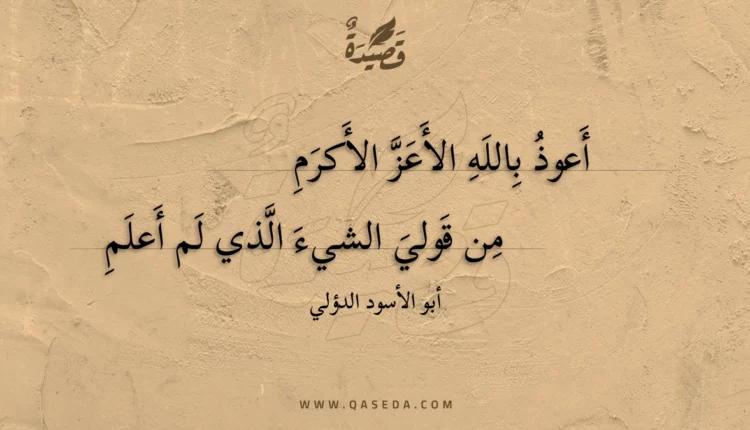 قَصِيدَةٌ
أَعوذُ بِاللَهِ الأَعَزَّ الأَكرَمِ
مِن قَوليَ الشيءَ الَّذي لَم أَعلَمِ
أبو الأسود الدؤلي
WWW.QASEDA.COM